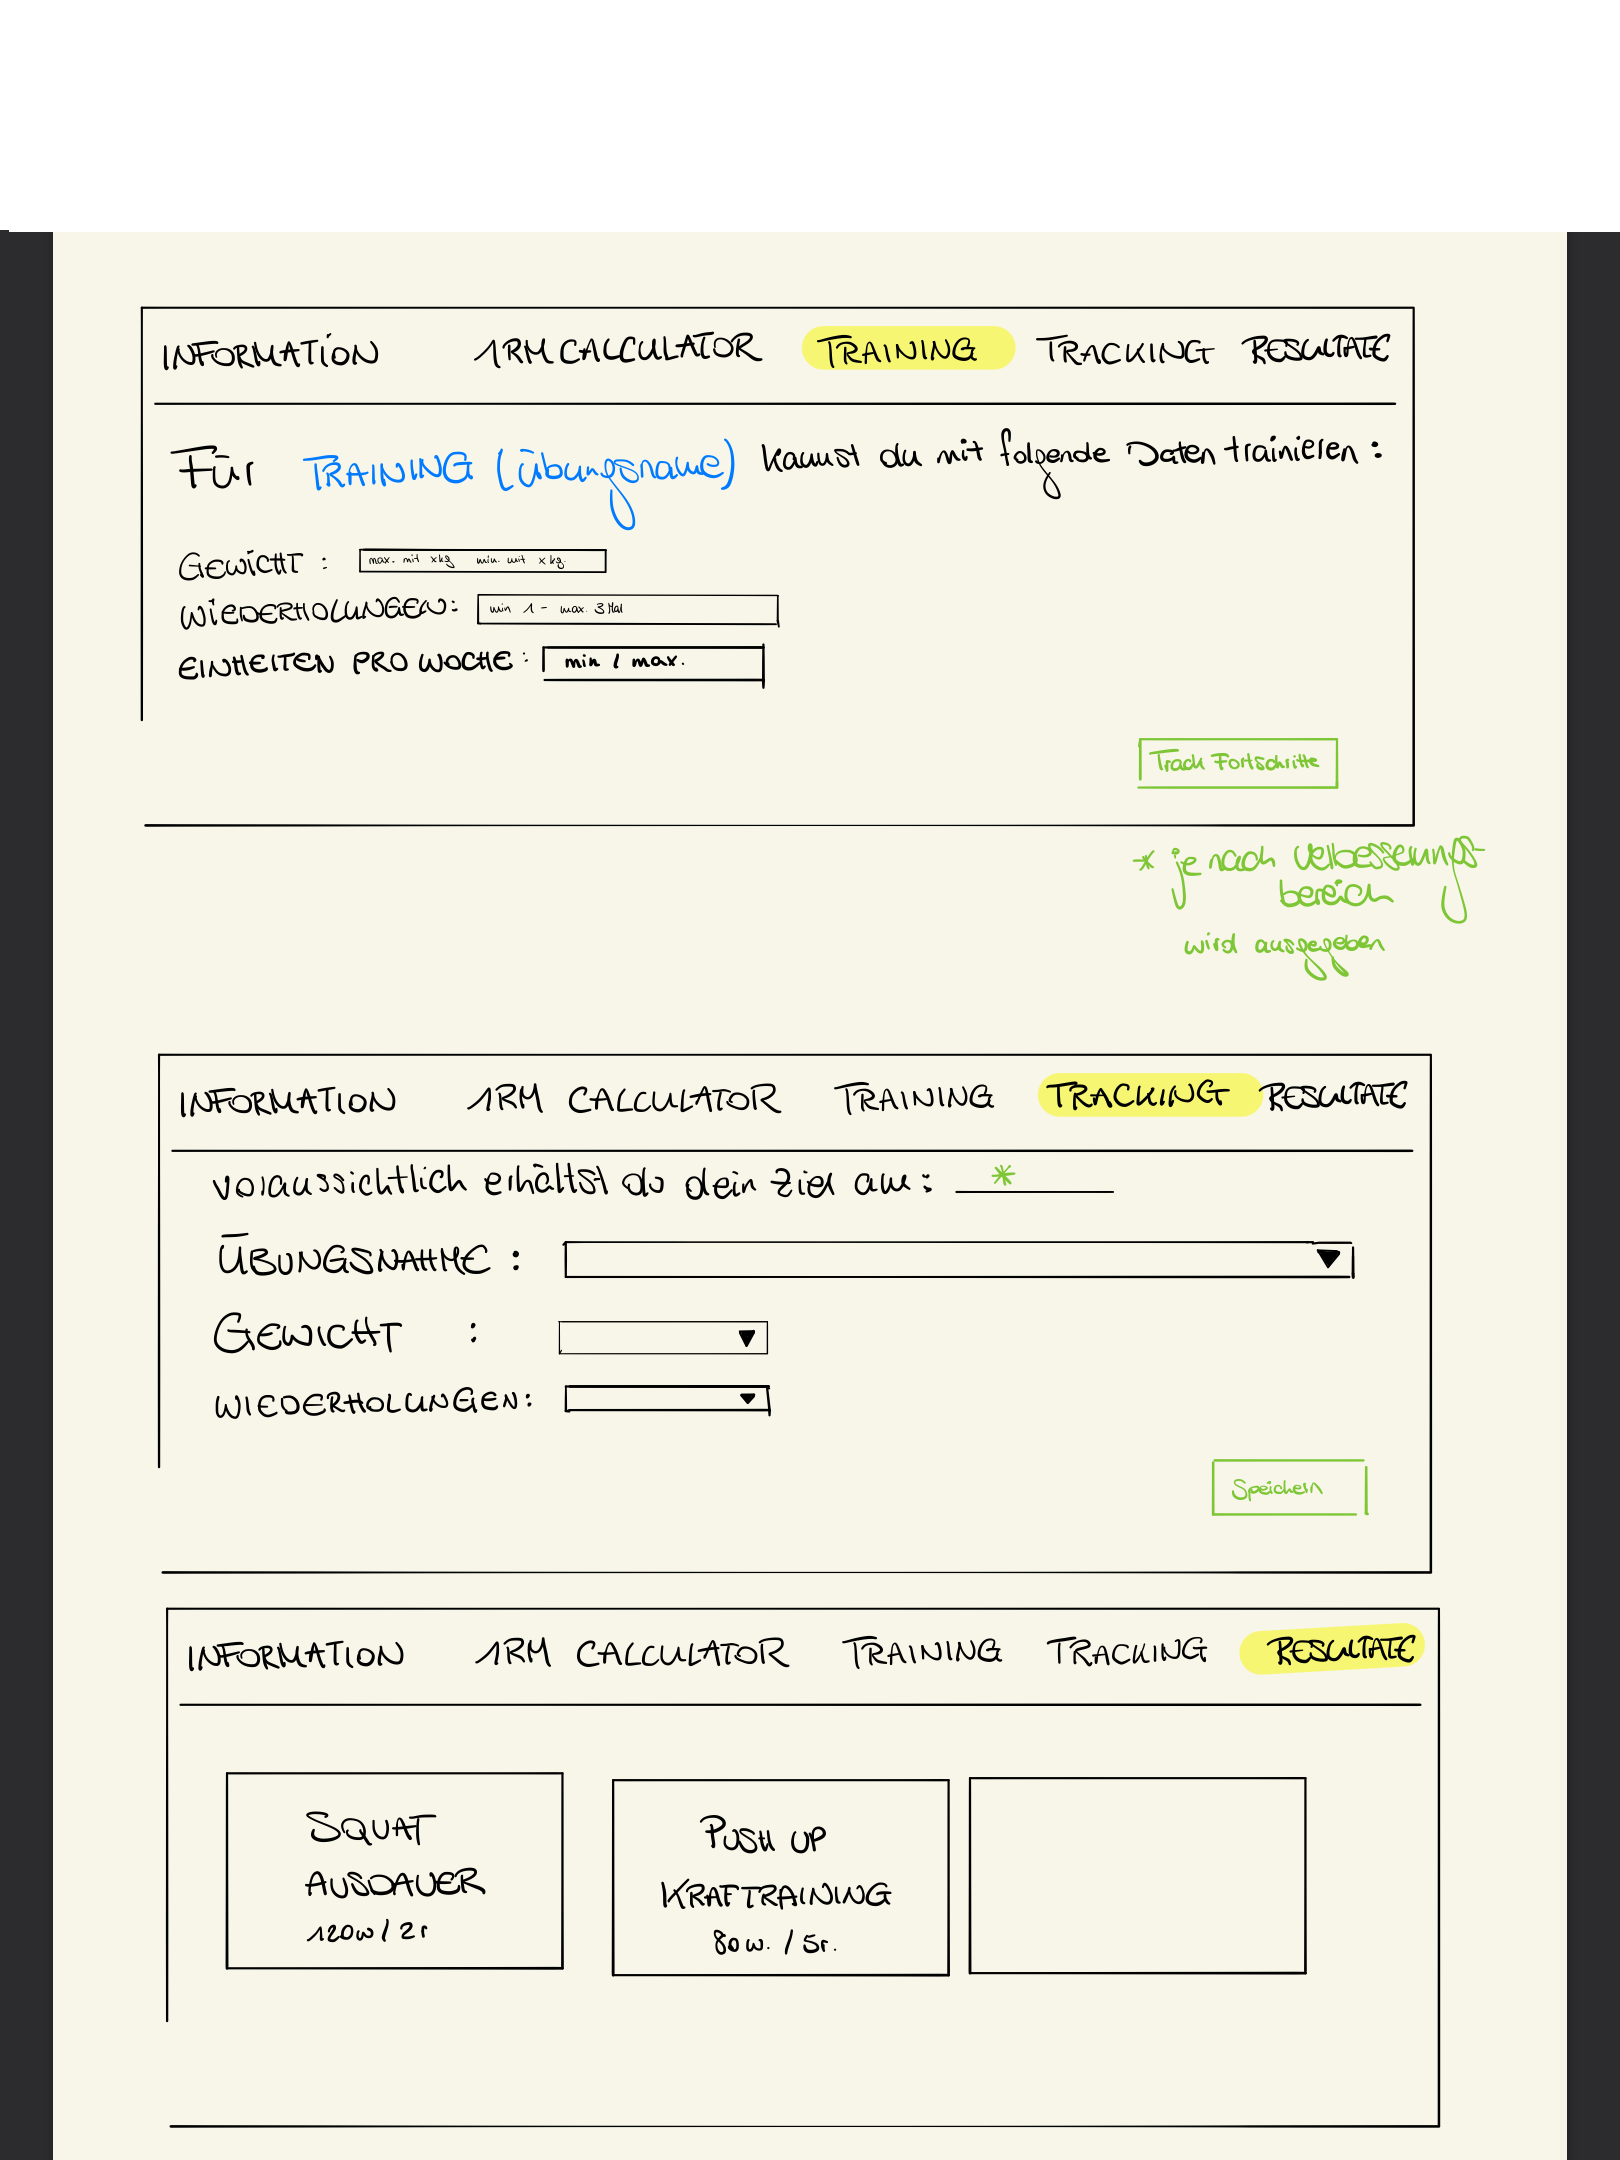 INFORMATION 1RM CALCULATOR TRAINING TRACKING RESULTATE
Für TRAINING (Übungsname) kannst du mit folgende Daten trainieren :
GEWICHT : max. mit x kg min. mit x kg.
WIEDERHOLUNGEN: min 1 - max. 3 Mal
EINHEITEN PRO WOCHE: min / max.
Track Fortschritte
* je nach Verbesserungs-
bereich
wird ausgegeben
INFORMATION 1RM CALCULATOR TRAINING TRACKING RESULTATE
voraussichtlich erhältst du dein Ziel am: *
ÜBUNGSNAHME :
GEWICHT :
WIEDERHOLUNGEN:
Speichern
INFORMATION 1RM CALCULATOR TRAINING TRACKING RESULTATE
SQUAT
AUSDAUER
120w / 2r
PUSH UP
KRAFTRAINING
80 w. / 5r.